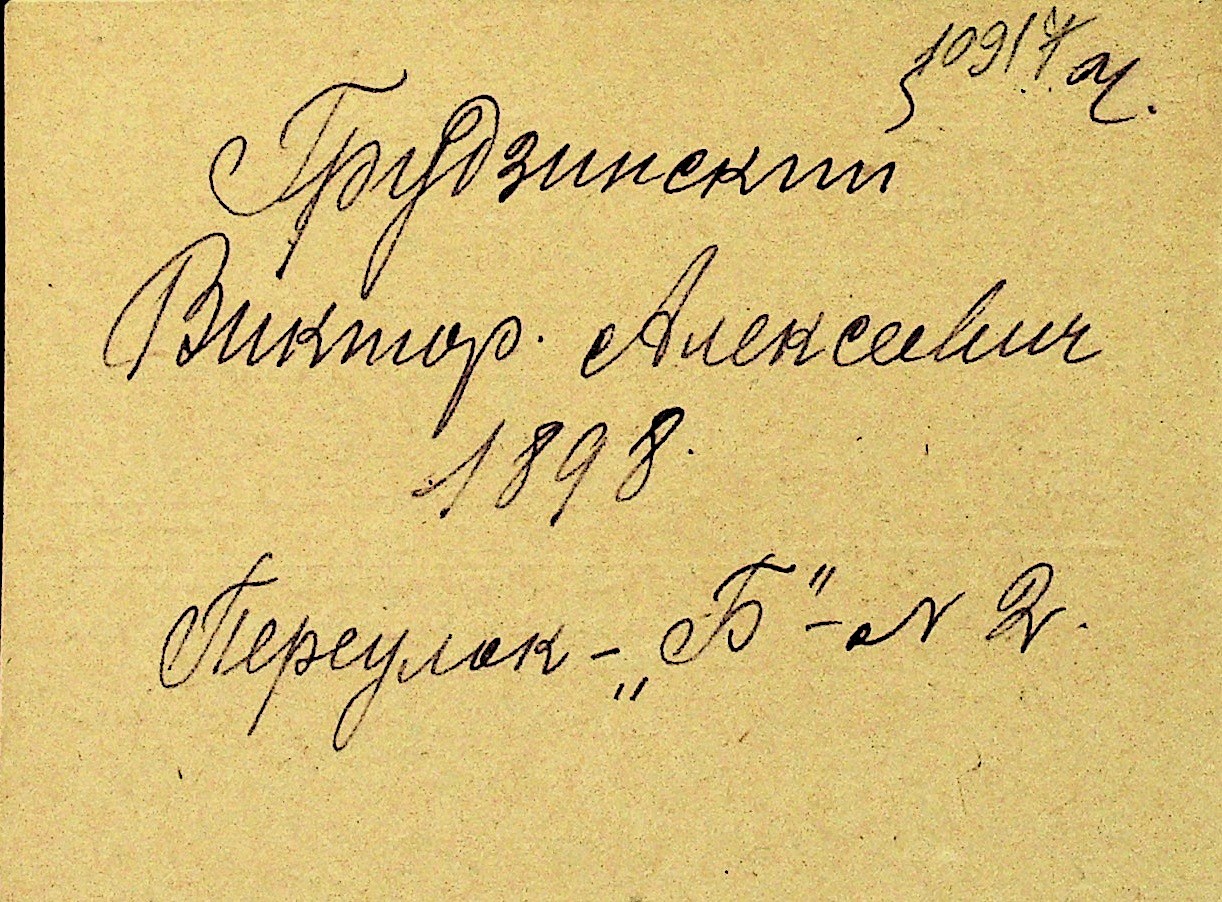 Грудзинский
Виктор. Алексеевич
1898.
Переулок – „Б" – N 2.